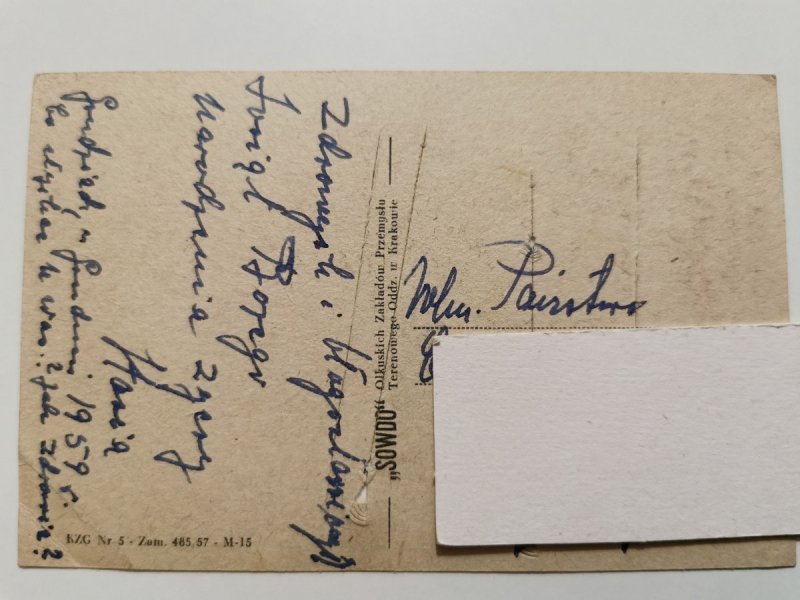 Zdrowych i błogosławionych
Świąt Bożego
Narodzenia życzy
Hania
Grudziądz, w Grudniu 1959 r.
Co słychać u was? jak zdrowie?
KZG Nr 5 - Zam. 485/57 - M-15
„SOWDO" Olkuskich Zakładów Przemysłu
Terenowego Oddz. w Krakowie
Wlm. Państwo